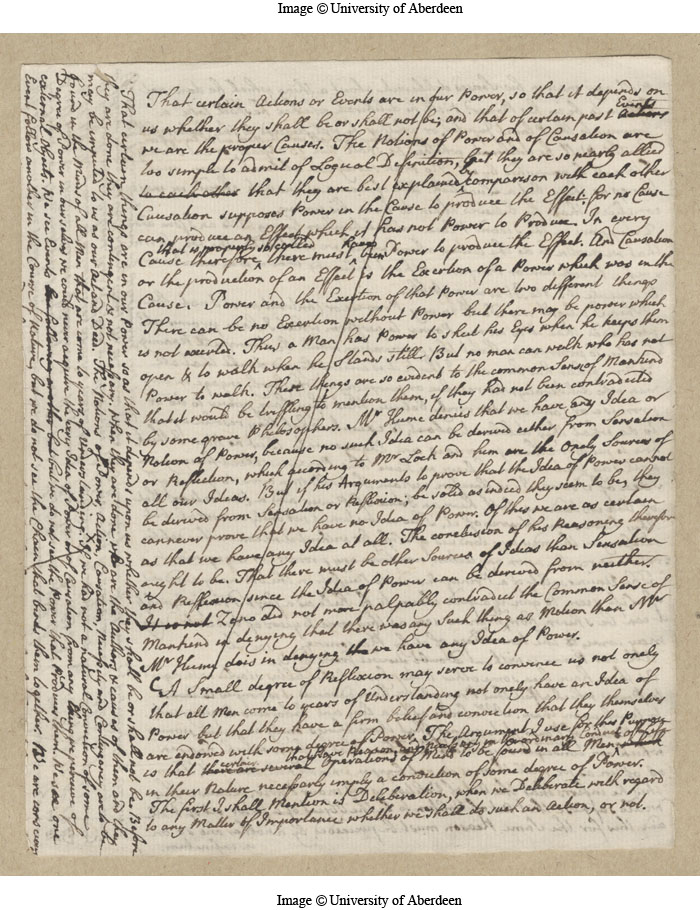 Image © University of Aberdeen
That certain Actions or Events are in our Power, so that it depends on
us whether they shall be or shall not be; and that of certain past Actions Events
we are the proper Causes. The Notions of Power and of Causation are
too simple to admit of Logical Definition, yet they are so nearly allied
to each other that they are best explained by comparison with each other
Causation supposes Power in the Cause to produce the Effect. for no Cause
can produce an Effect which it has not Power to Produce. In every
Cause therefore that is properly so called there must have been Power to produce the Effect. And Causation
or the production of an Effect is the Exertion of a Power which was in the
Cause. Power and the Exertion of that Power are two different things
There can be no Exertion without Power but there may be power which
is not exerted. Thus a Man has Power to shut his Eyes when he keeps them
open & to walk when he Stands still. But no man can walk who has not
Power to walk. These things are so evident to the common Sense of Mankind
that it would be trifling to mention them, if they had not been contradicted
by some grave Philosophers. Mr Hume denies that we have any Idea or
Notion of Power, because no such Idea can be derived either from Sensation
or Reflection, which according to Mr Lock and him are the Onely Sources of
all our Ideas. But if his Arguments to prove that the Idea of Power cannot
be derived from Sensation or Reflexion, be solid as indeed they seem to be, they
can never prove that we have no Idea of Power. Of this we are as certain
as that we have any Idea at all. The conclusion of his Reasoning therefore
ought to be. That there must be other Sources of Ideas than Sensation
and Reflexion since the Idea of Power can be derived from neither.
It is not Zeno did not more palpably contradict the Common Sense of
Mankind in denying that there was any such thing as Motion than Mr
Mr Hume dois in denying the we have any Idea of Power.
A Small degree of Reflexion may serve to convince us not onely
that all Men come to years of Understanding not onely have an Idea of
Power but that they have a firm belief and conviction that they themselves
are endowed with some degree of Power. The Argument I use for this Purpose
is that there are several certain Operations of Mind to be found in all Men
in their Nature necessarly imply a conviction of some degree of Power.
The first I shall Mention is Deliberation, when we Deliberate with regard
to any Matter of Importance whether we shall do such an Action, or not.
That certain things are in our Power so as that it depends upon us whether they shall be or shall not be. Before
they are done they are contingent & not necessary, when they are done we are the Authors & causes of them and they
may be imputed to us as our Act and Deed. The Notions of Power, Action, Causation, Necessity and Contingency, are to be
found in the Minds of all Men that are come to years of Understanding. If we had not a natural Conviction of some
Degree of Power in ourselves we could never acquire the very Idea of Power or of Causation from any thing we perceive of
external Objects. We see Events following another but we do not see the Power that Produces them. We see one
Event follow another in the Course of Nature, but we do not see the Chain that binds them together. We are conscious
Image © University of Aberdeen